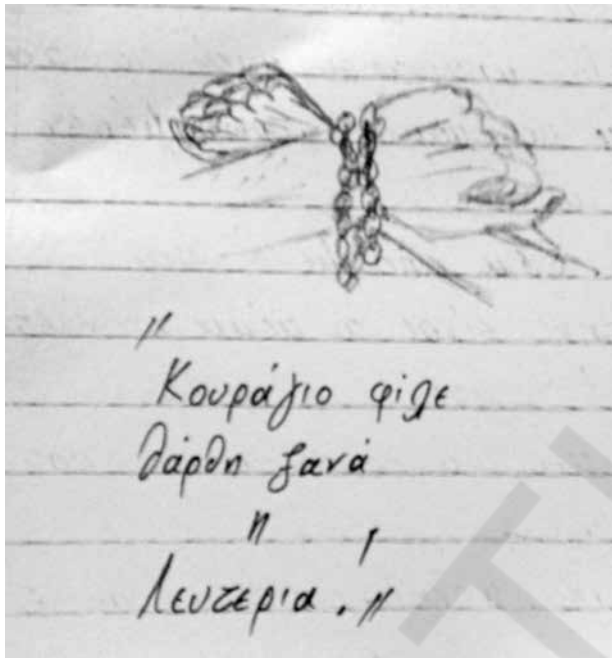 "
Κουράγιο φίλε
θάρθη ξανά
η
Λευτεριά."